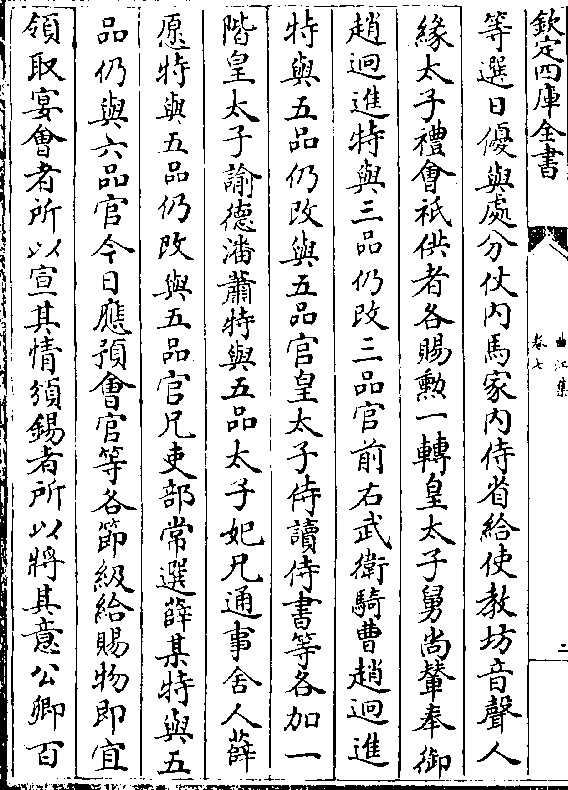 欽定四庫全書
曲江集
卷七
二
等選日優與處分仗内馬家内侍省給使教坊音聲人
緣太子禮會祇供者各賜勲一轉皇太子舅尚輦奉御
趙迥進特與三品仍改三品官前右武衛騎曹趙迥進
特與五品仍改與五品官皇太子侍讀侍書等各加一
階皇太子諭德潘肅特與五品太子妃兄通事舍人薛
愿特與五品仍改與五品官兄吏部常選薛某特與五
品仍與六品官今日應預會官等各節級給賜物即宜
領取宴會者所以宣其情頒錫者所以將其意公卿百